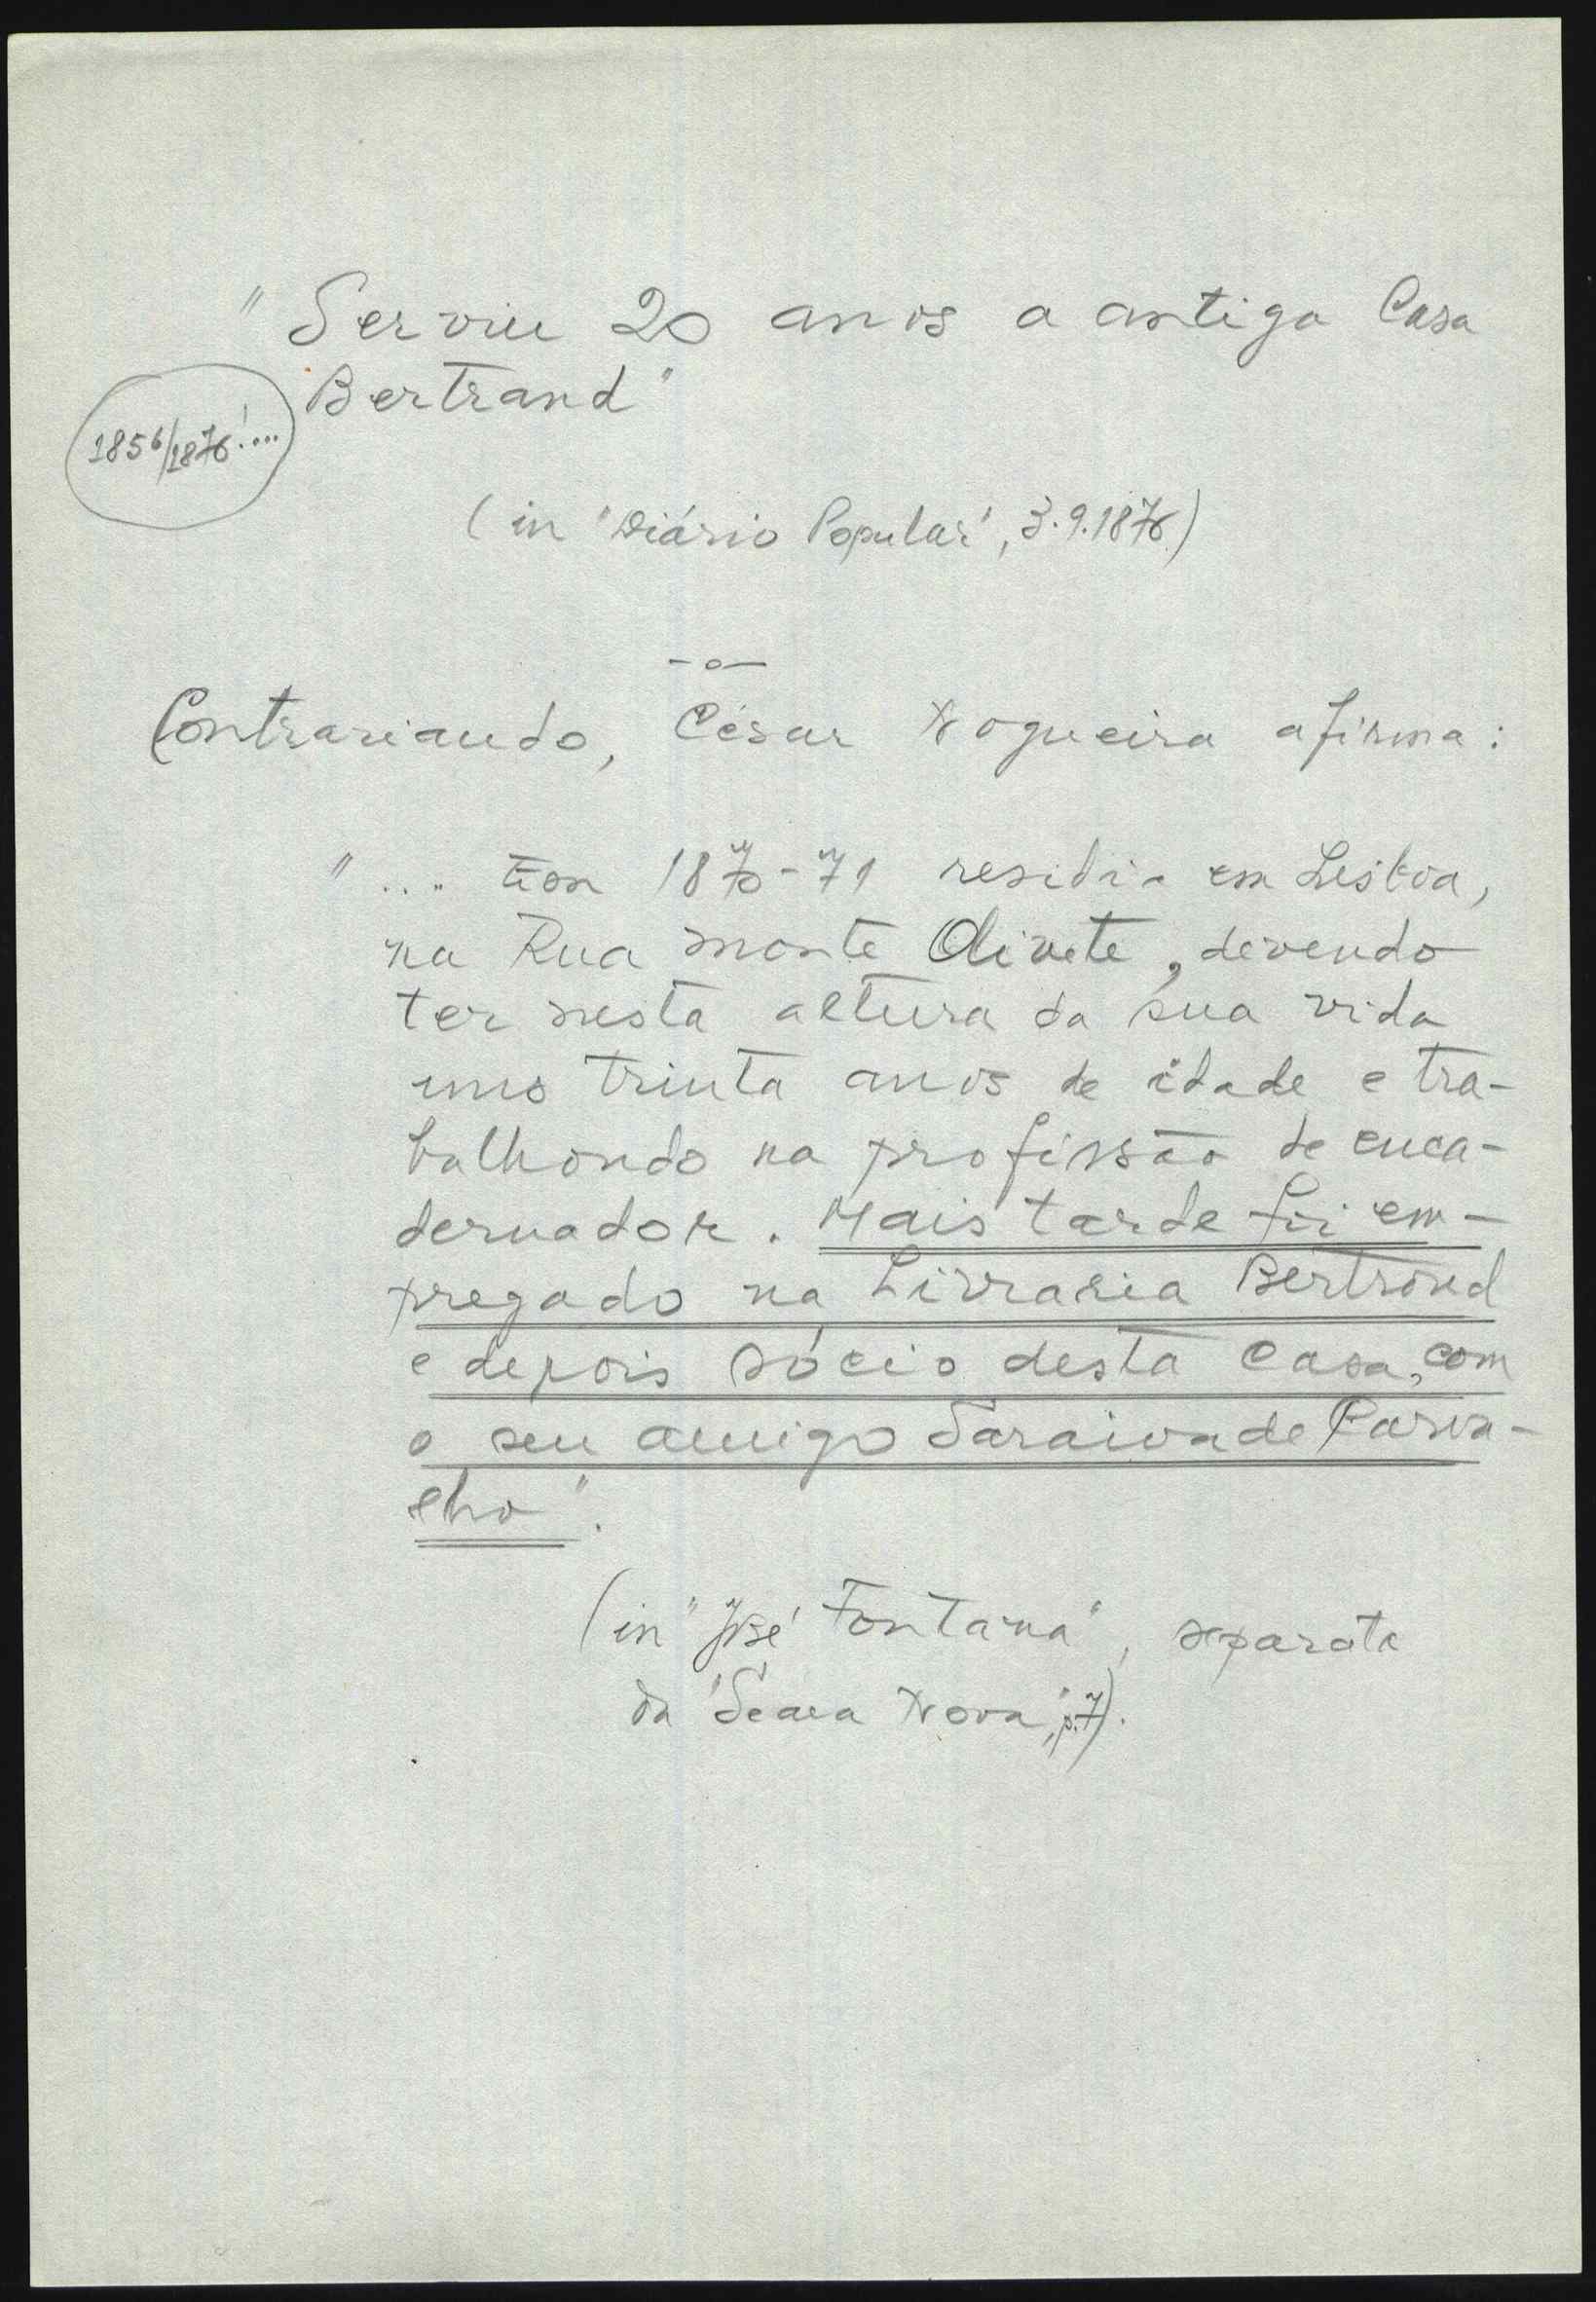 "Serviu 20 anos a antiga Casa
Bertrand"
1856/1876!....
(in "Diário Popular", 3.9.1876)
-o-
Contrariando, César Nogueira afirma:
"... Em 1870-71 residia em Lisboa,
na Rua Monte Olivete, devendo
ter nesta altura da sua vida
uns trinta anos de idade e tra-
balhando na profissão de enca-
dernador. Mais tarde foi em-
pregado na Livraria Bertrand
e depois sócio desta casa, com
o seu amigo Saraiva de Carva-
lho".
(in "José Fontana", separata
da "Seara Nova", p.7).